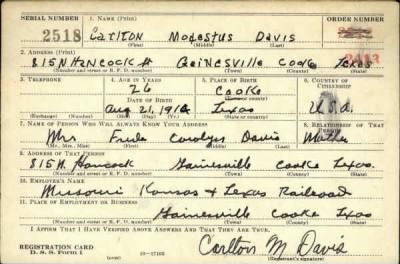 SERIAL NUMBER 1. Name (Print) ORDER NUMBER
2518 Carlton Modestus Davis
(First) (Middle) (Last)
2. Address (Print) 2413
815 N Hancock st Gainesville Cooke Texas
(Number and street or R. F. D. number) (Town) (County) (State)
3. Telephone 4. Age in Years 5. Place of Birth 6. Country of Citizenship
26 Cooke
Date of Birth (Town or county)
Aug. 21, 1914 Texas U.S.a.
(Exchange) (Number) (Mo.) (Day) (Yr.) (State or country)
7. Name of Person Who Will Always Know Your Address 8. Relationship of That Person
Mrs. Carolyn Davis Mother
(Mr., Mrs., Miss) (First) (Middle) (Last)
9. Address of That Person
815 N. Hancock Gainesville Cooke Texas.
(Number and street or R. F. D. number) (Town) (County) (State)
10. Employer's Name
Missouri Kansas & Texas Railroad
11. Place of Employment or Business
Gainesville Cooke Texas
(Number and street or R. F. D. number) (Town) (County) (State)
I Affirm That I Have Verified Above Answers and That They Are True.
REGISTRATION CARD
D. S. S. Form 1 Carlton M. Davis
(Registrant's signature)